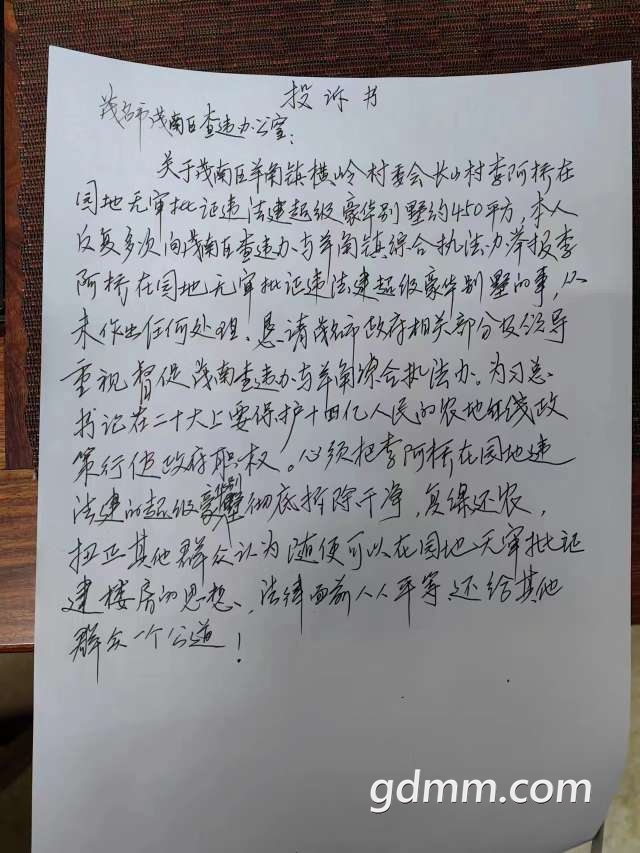 投诉书
茂名市茂南区查违办公室：
关于茂南区羊角镇横岭村委会长山村李阿桥在
园地无审批证违法建超级豪华别墅约450平方，本人
反复多次向茂南区查违办与羊角镇综合执法办举报李
阿桥在园地无审批证违法建超级豪华别墅的事，从
未作出任何处理，恳请茂名市政府相关部分及领导
重视督促茂南查违办与羊角综合执法办。为习总
书记在二十大上要保护十四亿人民的农地红线政
策行使政府职权。必须把李阿桥在园地违
法建的超级豪华别墅彻底拆除干净，复绿还农，
扭正其他群众认为随便可以在园地无审批证
建楼房的思想，法律面前人人平等，还给其他
群众一个公道！
gdmm.com